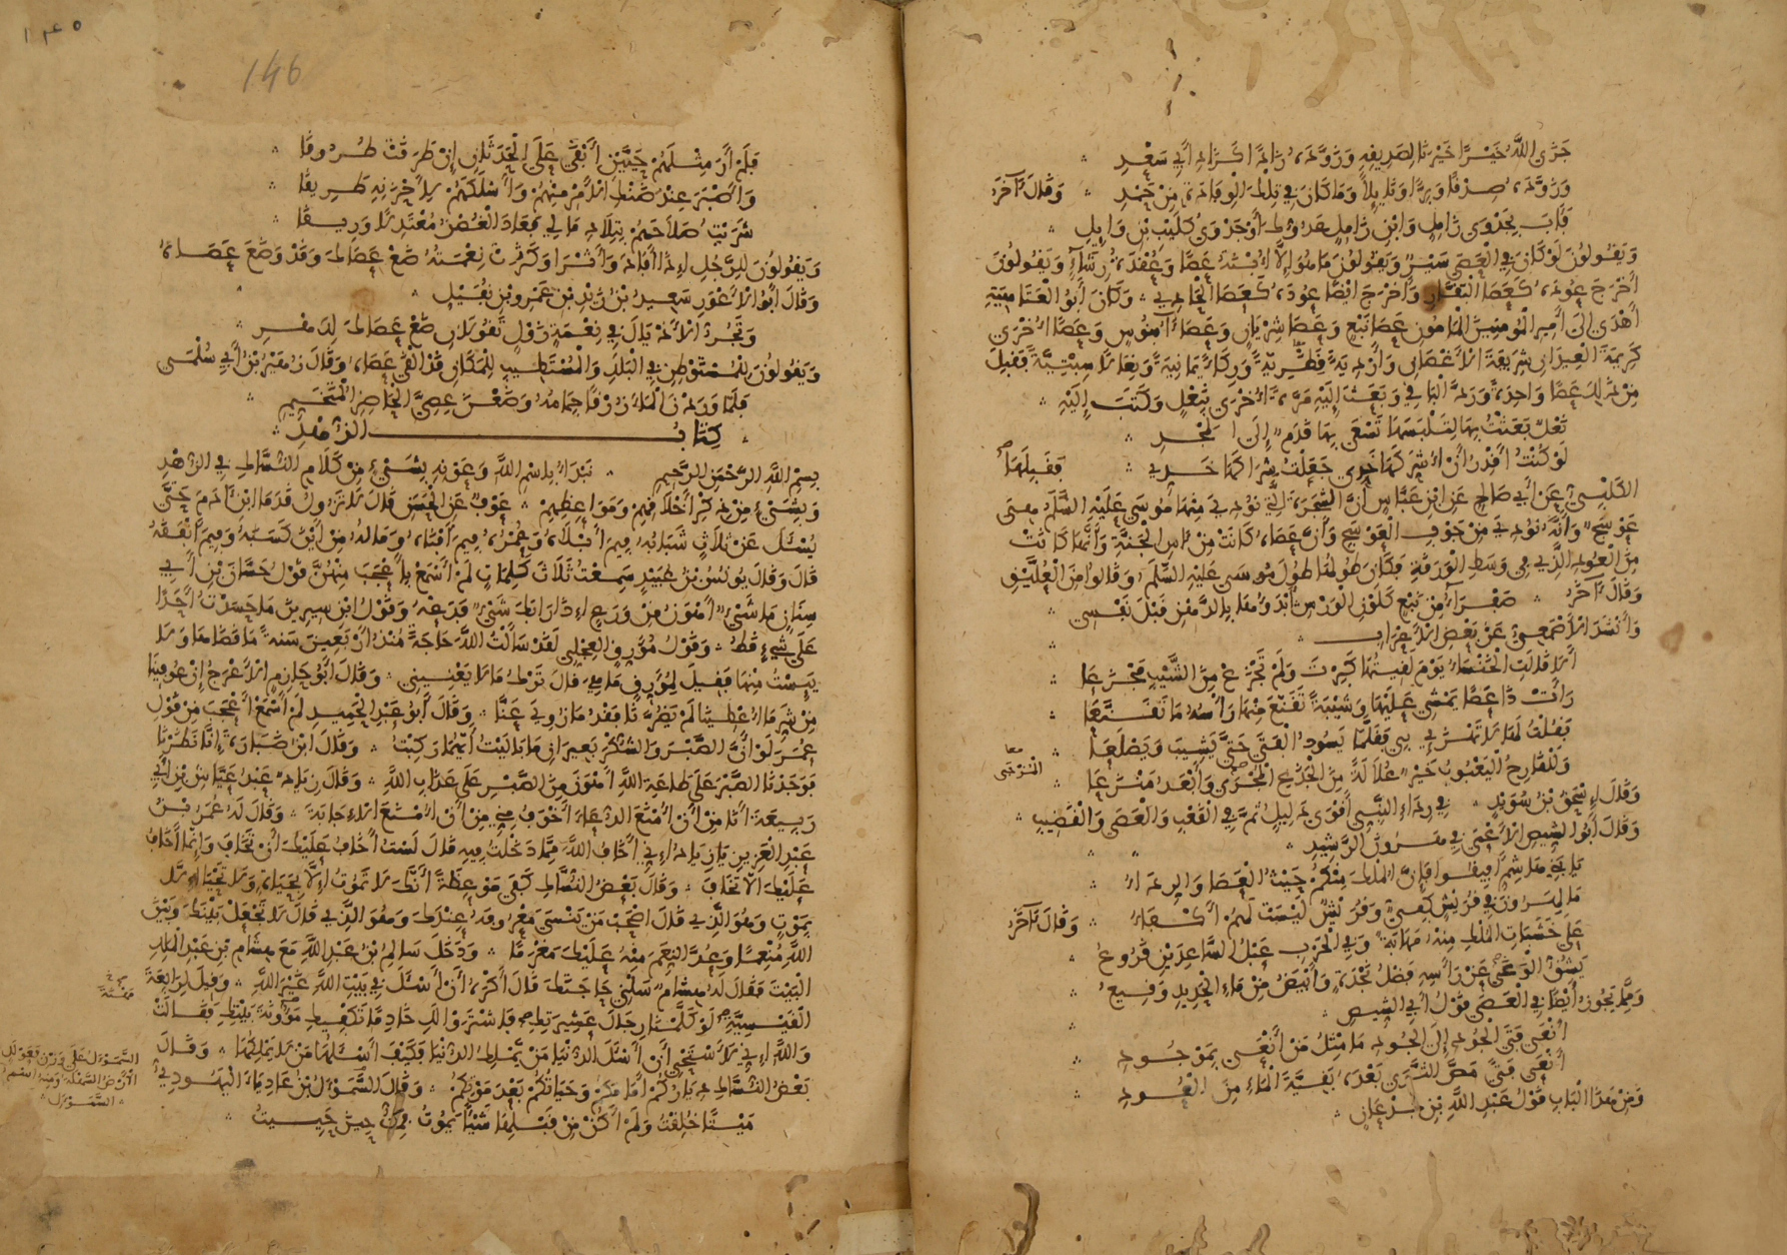 جَزَى اللَّهُ خَيْرًا خَيْرَنَا لِصَدِيقِهِ وَزَوَّدَهُ زَادًا كَزَادِ أَبِي سَعْدِ
وَزَوَّدَهُ صِدْقًا وَبِرًّا وَنَائِلًا وَمَا كَانَ فِي تِلْكَ الْوِفَادَةِ مِنْ حَمْدِ وَقَالَ آخَرُ
فَآبَ بِجَدْوَى زَامِلٍ وَابْنِ زَامِلٍ عَدُوُّكَ أَوْ جَدْوَى كُلَيْبِ بْنِ وَايِلِ
وَيَقُولُونَ لَوْ كَانَ فِي الْعَصَى سَيْرٌ وَيَقُولُونَ مَا هُوَ إِلَّا أُبْنَةُ عَصًا وَعُقْدَةُ رِشَاءٍ وَيَقُولُونَ
أَخْرَجَ عُودَهُ كَعَصَا الْبَقَّارِ وَأَخْرَجَ أَيْضًا عُودَهُ كَعَصَا الْحَادِي وَكَانَ أَبُو الْعَتَاهِيَةِ
أَهْدَى إِلَى أَمِيرِ الْمُومِنِينَ الْمَامُونِ عَصَا نَبْعٍ وَعَصَا شِرْيَانٍ وَعَصَا آبَنُوسٍ وَعَصًا أُخْرَى
كَرِيمَةَ الْعِيدَانِ شَرِيفَةَ الْأَغْصَانِ وَأَرْدِيَةً قَطَرِيَّةً وَرِكَاءً يَمَانِيَةً وَنِعَالًا سِبْتِيَّةً فَقَبِلَ
مِنْ ذَلِكَ عَصًا وَاحِدَةً وَرَدَّ الْبَاقِيَ وَبَعَثَ إِلَيْهِ مَرَّةً أُخْرَى بِنَعْلٍ وَكَتَبَ إِلَيْهِ
نَعْلٌ بَعَثْتُ بِهَا لِتَلْبَسَهَا تَسْعَى بِهَا قَدَمٌ إِلَى الْمَجْدِ
لَوْ كُنْتُ أَقْدِرُ أَنْ أُشَرِّكَهَا خَدِّي جَعَلْتُ شِرَاكَهَا خَدِّي فَقَبِلَهَا
الْكَلْبِيُّ عَنْ أَبِي صَالِحٍ عَنِ ابْنِ عَبَّاسٍ أَنَّ الشَّجَرَةَ الَّتِي نُودِيَ مِنْهَا مُوسَى عَلَيْهِ السَّلَمُ هِيَ
عَوْسَجٌ وَأَنَّهُ نُودِيَ مِنْ جَوْفِ الْعَوْسَجِ وَأَنَّ عَصَاهُ كَانَتْ مِنْ آسِ الْجَنَّةِ وَأَنَّهَا كَانَتْ
مِنَ الْعُودِ الَّذِي فِي وَسَطِ الْوَرَقَةِ فَكَانَ طُولُهَا طُولَ مُوسَى عَلَيْهِ السَّلَمُ وَقَالُوا مِنَ الْعُلَّيْقِ
وَقَالَ آخَرُ صَفْرَاءُ مِنْ نَبْعٍ كَلَوْنِ الْوَرْسِ أَبْدَؤُهَا بِالدُّهْنِ قَبْلَ نَفْسِي
وَأَنْشَدَ الْأَصْمَعِيُّ عَنْ بَعْضِ الْأَعْرَابِ
أَلَا قَالَتِ الْخَنْسَاءُ يَوْمَ لَقِيتُهَا كَبِرْتَ وَلَمْ تَجْزَعْ مِنَ الشَّيْبِ مَجْزَعَا
رَأَتْ ذَا عَصًا يَمْشِي عَلَيْهَا وَشَيْبَةً تَقَنَّعَ مِنْهَا رَأْسُهُ مَا تَقَنَّعَا
فَقُلْتُ لَهَا لَا تَهْزَئِي بِي فَقَلَّمَا يَسُودُ الْفَتَى حَتَّى يَشِيبَ وَيَصْلَعَا
وَلَلْقَارِحُ الْيَعْبُوبُ خَيْرٌ عُلَالَةً مِنَ الْجَذَعِ الْمُجْرَى وَأَبْعَدُ مَنْزَعَا
الْمُزْجَى
وَقَالَ إِسْحَقُ بْنُ سُوَيْدٍ فِي رِدَاءِ النَّبِيِّ أَقْوَى دَلِيلٍ ثُمَّ فِي الْقَعْبِ وَالْعَصَى وَالْقَضِيبِ
وَقَالَ أَبُو الشِّيصِ الْأَعْمَى فِي هَارُونَ الرَّشِيدِ
يَا بَنِي هَاشِمٍ أَفِيقُوا فَإِنَّ الْمُلْكَ مِنْكُمْ حَيْثُ الْعَصَا وَالرِّدَاءُ
مَا لِهَرُونَ فِي قُرَيْشٍ كَفِيٌّ وَقُرَيْشٌ لَيْسَتْ لَهُمْ أَكْفَاءُ وَقَالَ آخَرُ
عَلَى خَشَبَاتِ الْمُلْكِ مِنْهُ مَهَابَةٌ وَفِي الْحَرْبِ عَبْلُ السَّاعِدَيْنِ قَرُوعُ
يَشُقُّ الْوَغَى عَنْ رَأْسِهِ فَضْلُ نَجْدَةٍ وَأَبْيَضُ مِنْ مَاءِ الْحَدِيدِ وَقِيعُ
وَمِمَّا يَجُوزُ أَيْضًا فِي الْعَصَى قَوْلُ أَبِي الشِّيصِ
أَنْعَى فَتَى الْجُودِ إِلَى الْجُودِ مَا مِثْلُ مَنْ أَنْعَى بِمَوْجُودِ
أَنْعَى فَتًى مَصَّ الثَّرَى بَعْدَهُ بَقِيَّةَ الْمَاءِ مِنَ الْعُودِ
وَمِنْ هَذَا الْبَابِ قَوْلُ عَبْدِ اللَّهِ بْنِ جُدْعَانَ
١٤٥
146
فَلَمْ أَرَ مِثْلَهُمْ حَيَّيْنِ أَبْقَى عَلَى الْحَدَثَانِ إِنْ طَرَقَتْ طُرُوقَا
وَأَصْبَرَ عِنْدَ ضَنْكِ الْأَمْرِ مِنْهُمْ وَأَسْلَكَهُمْ لِأَحْزَنِهِ طَرِيقَا
شَرَيْتُ صَلَاحَهُمْ بِتِلَادِ مَالِي فَعَادَ الْغُصْنُ مُعْتَدِلًا وَرِيقَا
وَيَقُولُونَ لِلرَّجُلِ إِذَا أَقَامَ وَأَثْرَا وَكَثُرَتْ نِعْمَتُهُ ضَعْ عَصَاكَ وَقَدْ وَضَعَ عَصَاهُ
وَقَالَ أَبُو الْأَعْوَرِ سَعِيدُ بْنُ زَيْدِ بْنِ عَمْرِو بْنِ نُفَيْلٍ
وَتَجُرُّ الْأَذْيَالَ فِي نِعْمَةٍ زَوْلٍ تَقُولَانِ ضَعْ عَصَاكَ لِدَهْرِ
وَيَقُولُونَ لِلْمُسْتَوْطِنِ فِي الْبَلَدِ وَالْمُسْتَطِيبِ لِلْمَكَانِ قَدْ أَلْقَى عَصَاهُ وَقَالَ زُهَيْرُ بْنُ أَبِي سُلْمَى
فَلَمَّا وَرَدْنَ الْمَاءَ زُرْقًا جِمَامُهُ وَضَعْنَ عِصِيَّ الْحَاضِرِ الْمُتَخَيِّمِ
كِتَابُ الزُّهْدِ
بِسْمِ اللَّهِ الرَّحْمَنِ الرَّحِيمِ نَبْدَأُ بِاسْمِ اللَّهِ وَعَوْنِهِ بِشَيْءٍ مِنْ كَلَامِ النُّسَّاكِ فِي الزُّهْدِ
وَبِشَيْءٍ مِنْ ذِكْرِ أَخْلَاقِهِمْ وَمَوَاعِظِهِمْ عَوْفٌ عَنِ الْحَسَنِ قَالَ لَا تَزُولُ قَدَمَا ابْنِ آدَمَ حَتَّى
يُسْئَلَ عَنْ ثَلَاثٍ شَبَابِهِ فِيمَ أَبْلَاهُ وَعُمْرِهِ فِيمَ أَفْنَاهُ وَمَالِهِ مِنْ أَيْنَ كَسَبَهُ وَفِيمَ أَنْفَقَهُ
قَالَ وَقَالَ يُونُسُ بْنُ عُبَيْدٍ سَمِعْتُ ثَلَاثَ كَلِمَاتٍ لَمْ أَسْمَعْ بِأَعْجَبَ مِنْهُنَّ قَوْلُ حَسَّانَ بْنِ أَبِي
سِنَانٍ مَا شَيْءٌ أَهْوَنُ مِنْ وَرَعٍ إِذَا رَابَكَ شَيْءٌ فَدَعْهُ وَقَوْلُ ابْنِ سِيرِينَ مَا حَسَدْتُ أَحَدًا
عَلَى شَيْءٍ قَطُّ وَقَوْلُ مُوَرِّقٍ الْعِجْلِيِّ لَقَدْ سَأَلْتُ اللَّهَ حَاجَةً مُنْذُ أَرْبَعِينَ سَنَةً مَا قَضَاهَا وَلَا
يَئِسْتُ مِنْهَا فَقِيلَ لِمُوَرِّقٍ مَا هِيَ قَالَ تَرْكُ مَا لَا يَعْنِينِي وَقَالَ أَبُو حَازِمٍ الْأَعْرَجُ إِنْ عُوفِينَا
مِنْ شَرِّ مَا أُعْطِينَا لَمْ يَضُرَّنَا فَقْدُ مَا زُوِيَ عَنَّا وَقَالَ أَبُو عَبْدِ الْحَمِيدِ لَمْ أَسْمَعْ أَعْجَبَ مِنْ قَوْلِ
عُمَرَ لَوْ أَنَّ الصَّبْرَ وَالشُّكْرَ بَعِيرَانِ مَا بَالَيْتُ أَيَّهُمَا رَكِبْتُ وَقَالَ ابْنُ ضُبَارَةَ إِنَّا نَظَرْنَا
فَوَجَدْنَا الصَّبْرَ عَلَى طَاعَةِ اللَّهِ أَهْوَنَ مِنَ الصَّبْرِ عَلَى عَذَابِ اللَّهِ وَقَالَ زِيَادٌ عَبْدُ عَيَّاشِ بْنِ أَبِي
رَبِيعَةَ أَنَا مِنْ أَنْ أُمْنَعَ الدُّعَاءَ أَخْوَفُ مِنِّي مِنْ أَنْ أُمْنَعَ الْإِجَابَةَ وَقَالَ لَهُ عُمَرُ بْنُ
عَبْدِ الْعَزِيزِ يَا زِيَادُ إِنِّي أَخَافُ اللَّهَ مِمَّا دَخَلْتُ فِيهِ قَالَ لَسْتُ أَخَافُ عَلَيْكَ أَنْ تَخَافَ وَإِنَّمَا أَخَافُ
عَلَيْكَ أَلَّا تَخَافَ وَقَالَ بَعْضُ النُّسَّاكِ كَفَى مَوْعِظَةً أَنَّكَ لَا تَمُوتُ إِلَّا بِحَيَاةٍ وَلَا تَحْيَا إِلَّا
بِمَوْتٍ وَهُوَ الَّذِي قَالَ اصْحَبْ مَنْ يَنْسَى مَعْرُوفَهُ عِنْدَكَ وَهُوَ الَّذِي قَالَ لَا تَجْعَلْ بَيْنَكَ وَبَيْنَ
اللَّهِ مُنْعِمًا وَعُدَّ النِّعَمَ مِنْهُ عَلَيْكَ مَغْرَمًا وَدَخَلَ سَالِمُ بْنُ عَبْدِ اللَّهِ مَعَ هِشَامِ بْنِ عَبْدِ الْمَلِكِ
الْبَيْتَ فَقَالَ لَهُ هِشَامٌ سَلْنِي حَاجَتَكَ قَالَ أَكْرَهُ أَنْ أَسْئَلَ فِي بَيْتِ اللَّهِ غَيْرَ اللَّهِ وَقِيلَ لِرَابِعَةَ
الْقَيْسِيَّةِ لَوْ كَلَّمْنَا رِجَالَ عَشِيرَتِكِ فَاشْتَرَوْا لَكِ خَادِمًا تَكْفِيكِ مَؤُونَةَ بَيْتِكِ فَقَالَتْ
وَاللَّهِ إِنِّي لَأَسْتَحْيِي أَنْ أَسْئَلَ الدُّنْيَا مَنْ يَمْلِكُ الدُّنْيَا فَكَيْفَ أَسْئَلُهَا مَنْ لَا يَمْلِكُهَا وَقَالَ
بَعْضُ النُّسَّاكِ دِيَارُكُمْ أَمَامَكُمْ وَحَيَاتُكُمْ بَعْدَ مَوْتِكُمْ وَقَالَ السَّمَوْأَلُ بْنُ عَادِيَاءَ الْيَهُودِيُّ
مَيْتًا خُلِقْتُ وَلَمْ أَكُنْ مِنْ قَبْلِهَا شَيْئًا يَمُوتُ فَمُتُّ حِينَ حَيِيتُ
السَّمَوْءَلُ عَلَى وَزْنِ فَعَوْلَلٍ
الْأَرْضُ السَّهْلَةُ وَمِنْهُ اسْمُ
السَّمَوْءَلِ